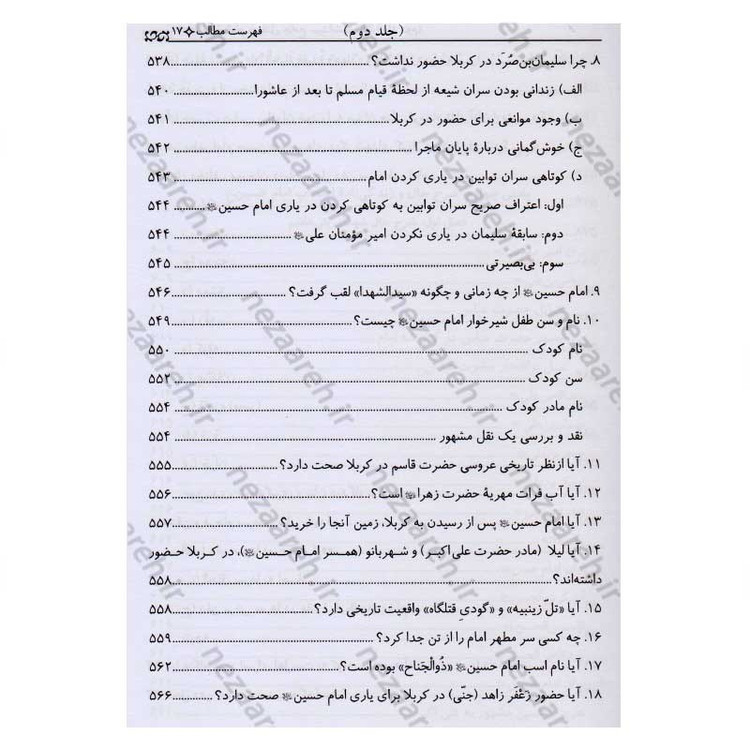 (جلد دوم) فهرست مطالب ۱۷
۸. چرا سلیمان‌بن‌صُرَد در کربلا حضور نداشت؟ ۵۳۸
الف) زندانی بودن سران شیعه از لحظهٔ قیام مسلم تا بعد از عاشورا ۵۴۰
ب) وجود موانعی برای حضور در کربلا ۵۴۱
ج) خوش‌گمانی دربارهٔ پایان ماجرا ۵۴۲
د) کوتاهی سران توابین در یاری کردن امام ۵۴۳
اول: اعتراف صریح سران توابین به کوتاهی کردن در یاری امام حسین ۵۴۴
دوم: سابقهٔ سلیمان در یاری نکردن امیر مؤمنان علی ۵۴۴
سوم: بی‌بصیرتی ۵۴۵
۹. امام حسین از چه زمانی و چگونه «سیدالشهدا» لقب گرفت؟ ۵۴۶
۱۰. نام و سن طفل شیرخوار امام حسین چیست؟ ۵۴۹
نام کودک ۵۵۰
سن کودک ۵۵۲
نام مادر کودک ۵۵۴
نقد و بررسی یک نقل مشهور ۵۵۴
۱۱. آیا ازنظر تاریخی عروسی حضرت قاسم در کربلا صحت دارد؟ ۵۵۵
۱۲. آیا آب فرات مهریهٔ حضرت زهرا است؟ ۵۵۶
۱۳. آیا امام حسین پس از رسیدن به کربلا، زمین آنجا را خرید؟ ۵۵۷
۱۴. آیا لیلا (مادر حضرت علی‌اکبر) و شهربانو (همسر امام حسین)، در کربلا حضور
داشته‌اند؟ ۵۵۸
۱۵. آیا «تلّ زینبیه» و «گودیِ قتلگاه» واقعیت تاریخی دارد؟ ۵۵۸
۱۶. چه کسی سر مطهر امام را از تن جدا کرد؟ ۵۵۹
۱۷. آیا نام اسب امام حسین «ذُوالْجَناح» بوده است؟ ۵۶۲
۱۸. آیا حضور زَعْفَر زاهد (جنّی) در کربلا برای یاری امام حسین صحت دارد؟ ۵۶۶
nezaareh.ir